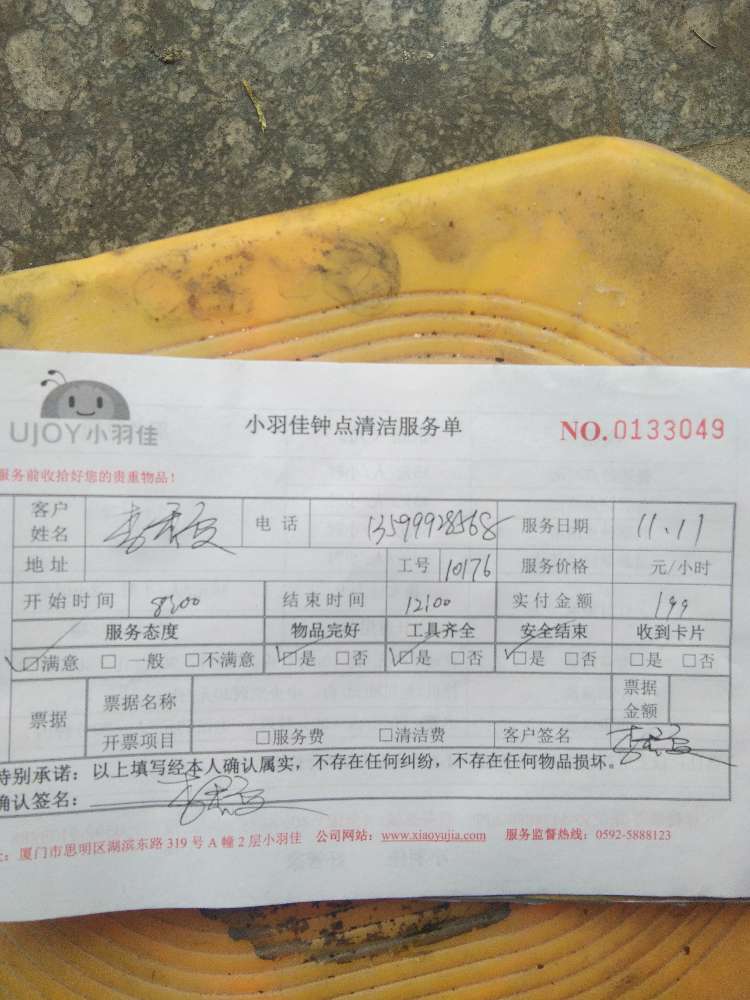 UJOY小羽佳
小羽佳钟点清洁服务单
NO.0133049
服务前收拾好您的贵重物品!
客户姓名 李 电话 13599928568 服务日期 11.11
地址 工号 10176 服务价格 元/小时
开始时间 8:00 结束时间 12:00 实付金额 199
服务态度 物品完好 工具齐全 安全结束 收到卡片
☑满意 □一般 □不满意 ☑是 □否 ☑是 □否 ☑是 □否 □是 □否
票据 票据名称 票据金额
开票项目 □服务费 □清洁费 客户签名 李
特别承诺：以上填写经本人确认属实，不存在任何纠纷，不存在任何物品损坏。
确认签名： 李
：厦门市思明区湖滨东路 319 号 A 幢 2 层小羽佳 公司网站：www.xiaoyujia.com 服务监督热线：0592-5888123